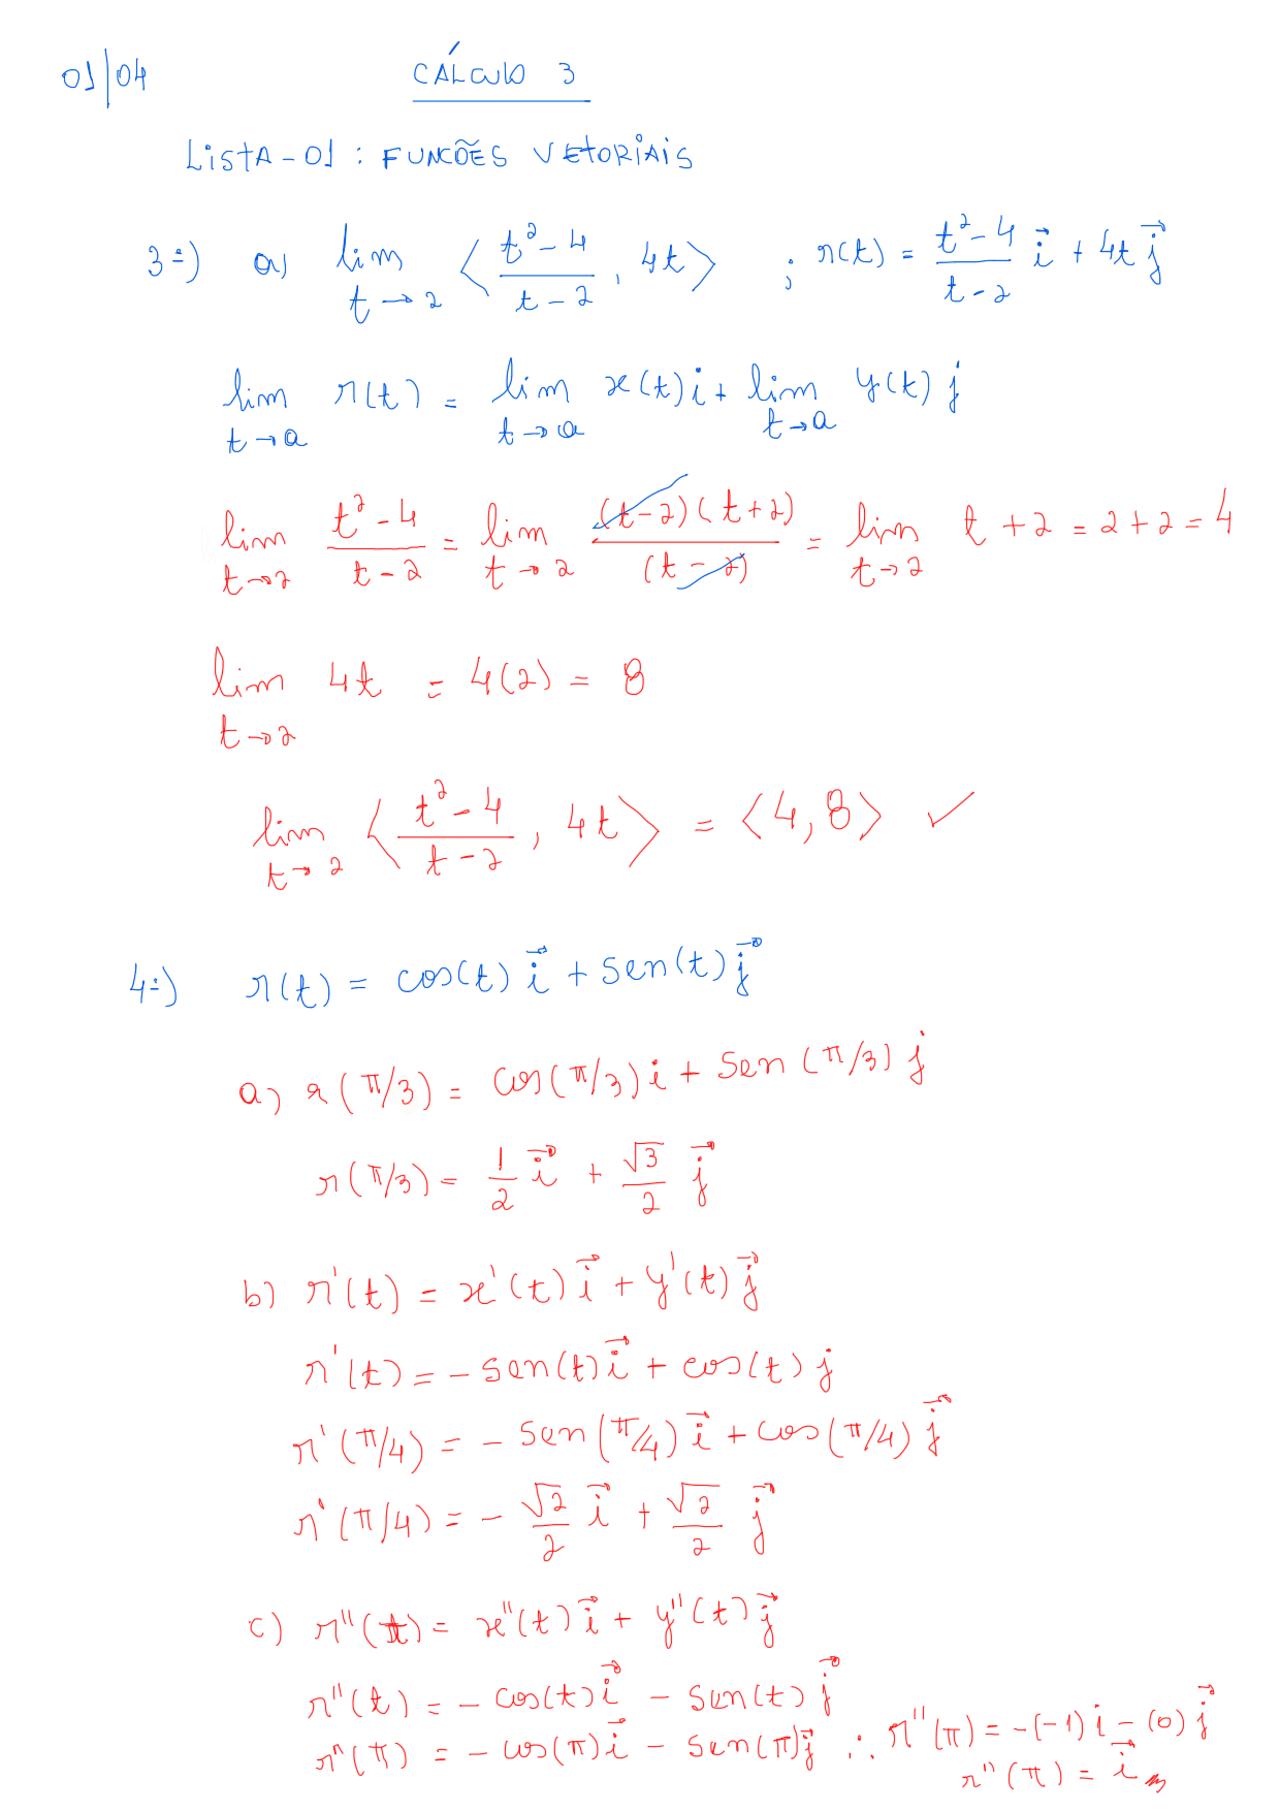 01/04 CÁLCULO 3
LISTA-01: FUNCÕES VETORIAIS
3=) a) lim t→2 ⟨(t²-4)/(t-2), 4t⟩ ; r(t) = (t²-4)/(t-2) i⃗ + 4t j⃗
lim t→a r(t) = lim t→a x(t)i + lim t→a y(t) j
lim t→2 (t²-4)/(t-2) = lim t→2 (t-2)(t+2)/(t-2) = lim t→2 t+2 = 2+2 = 4
lim t→2 4t = 4(2) = 8
lim t→2 ⟨(t²-4)/(t-2), 4t⟩ = ⟨4,8⟩ ✓
4=) r(t) = cos(t) i⃗ + sen(t) j⃗
a) r(π/3) = cos(π/3) i + sen(π/3) j
r(π/3) = 1/2 i⃗ + √3/2 j⃗
b) r'(t) = x'(t) i⃗ + y'(t) j⃗
r'(t) = -sen(t) i⃗ + cos(t) j
r'(π/4) = -sen(π/4) i⃗ + cos(π/4) j⃗
r'(π/4) = -√2/2 i⃗ + √2/2 j⃗
c) r''(t) = x''(t) i⃗ + y''(t) j⃗
r''(t) = -cos(t) i⃗ - sen(t) j⃗
r''(π) = -cos(π) i⃗ - sen(π) j⃗ ∴ r''(π) = -(-1) i - (0) j⃗
r''(π) = i⃗